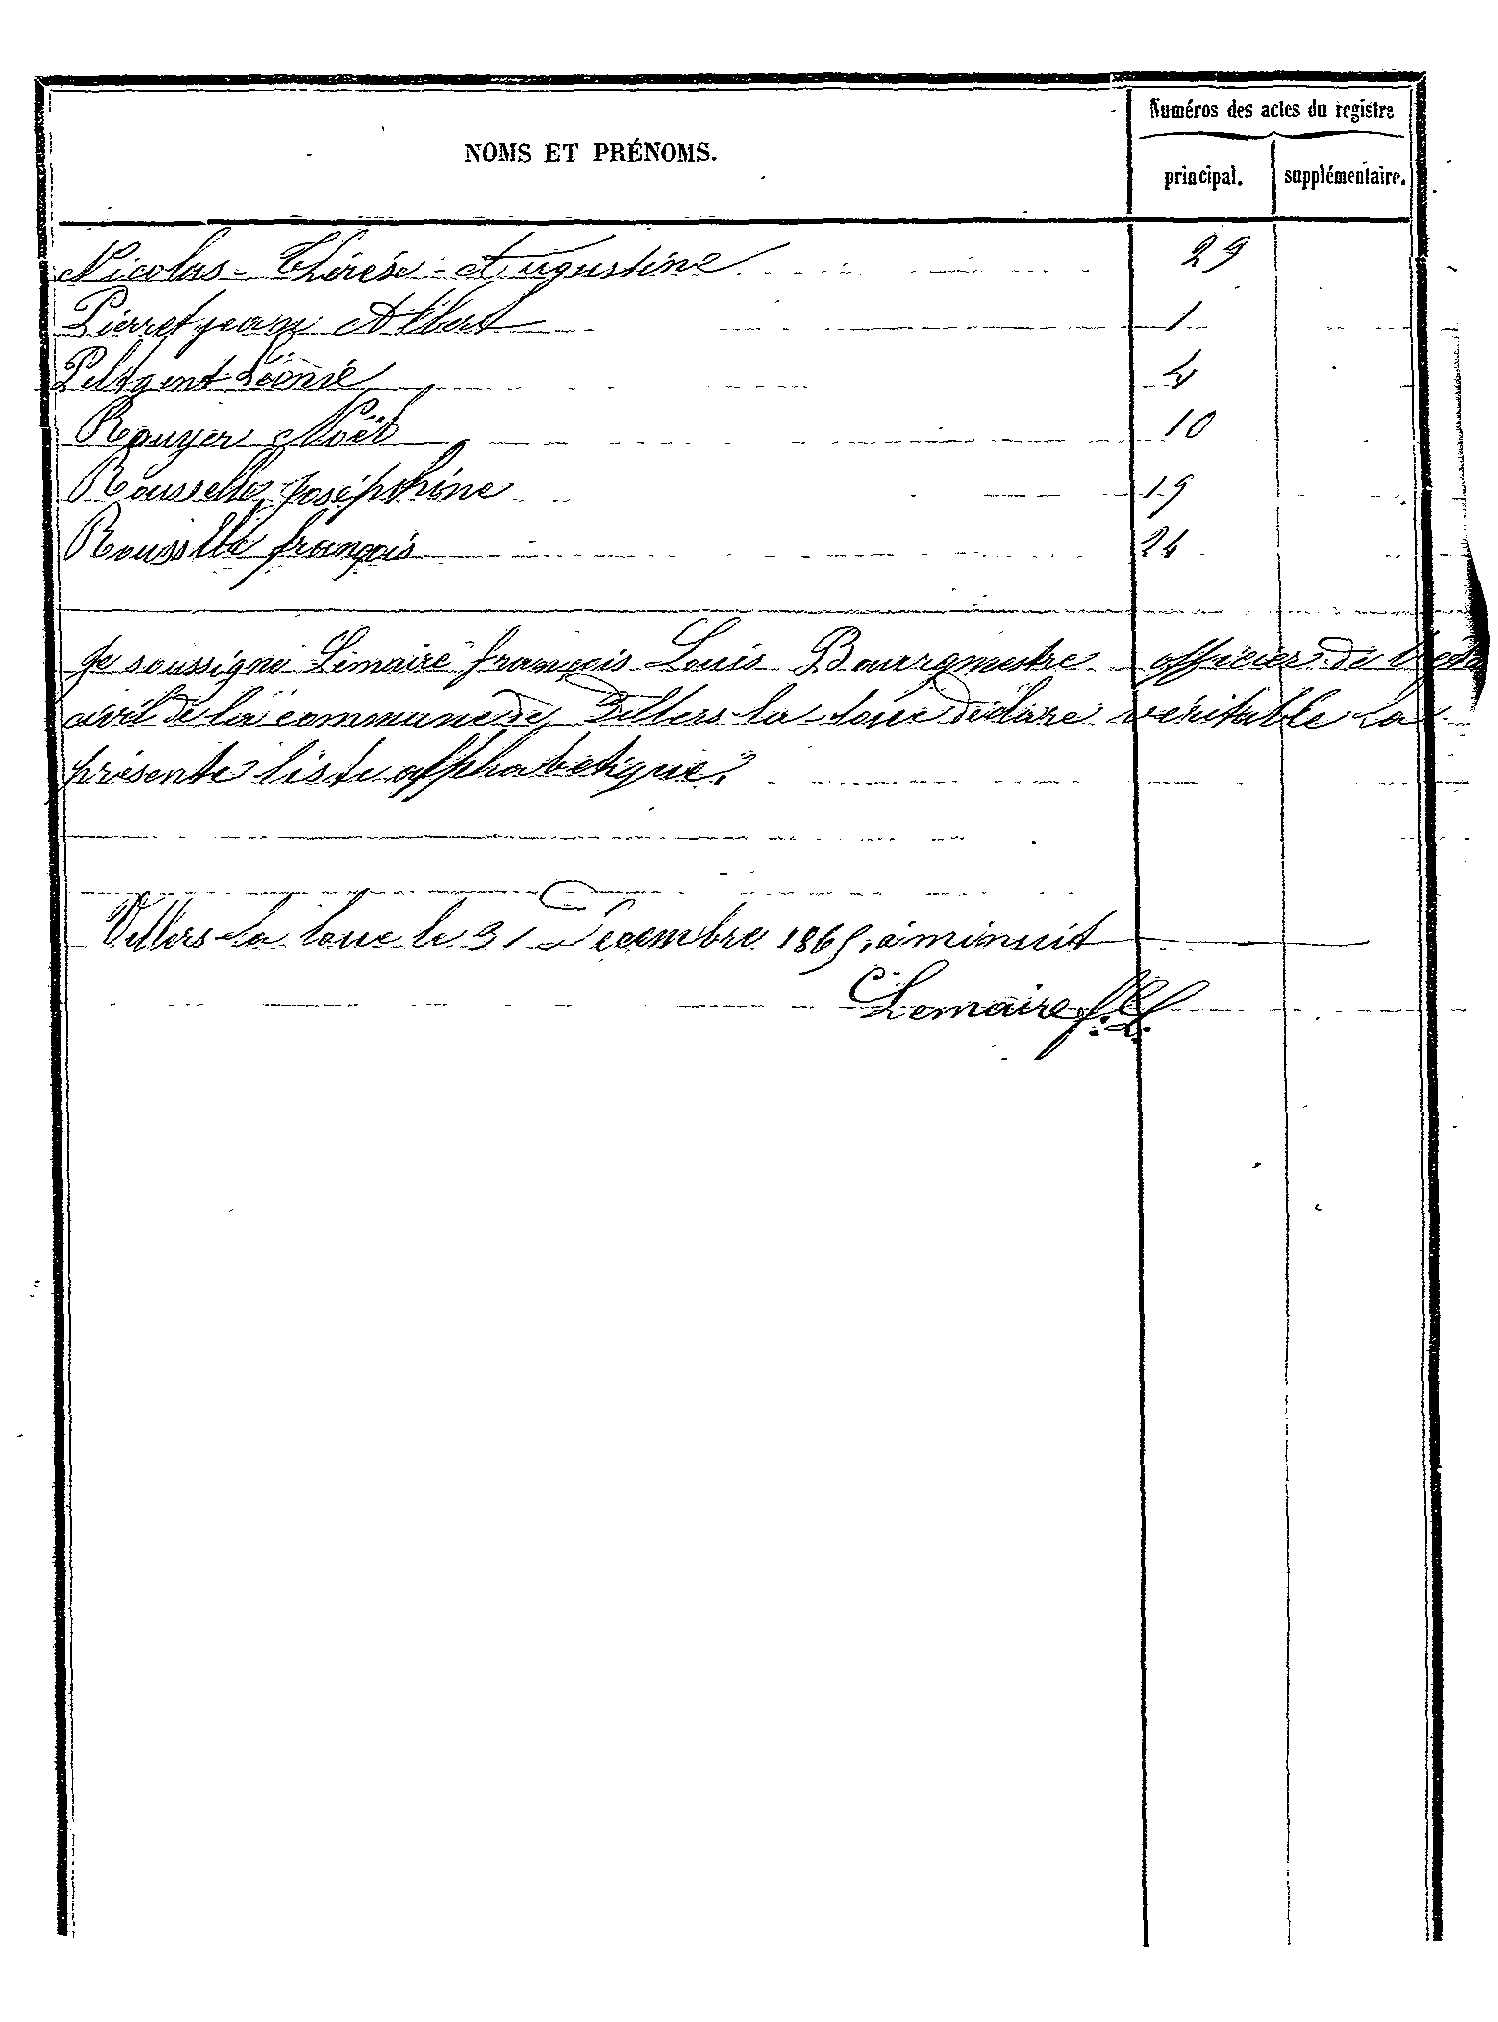 Numéros des actes du registre
NOMS ET PRÉNOMS.
principal. supplémentaire.
Nicolas - Thérèse - Augustine 29
Pierret jean Albert 1
Peltgent Léonie 4
Rouyer Noël 10
Rousselle Joséphine 19
Rousselle françois 24
Je soussigné Lemaire françois Louis Bourgmestre officier de l'état
civil de la commune de Villers-la-loue déclare véritable la
présente liste alphabétique.
Villers-la loue le 31 Décembre 1865, à minuit
Lemaire f. L.